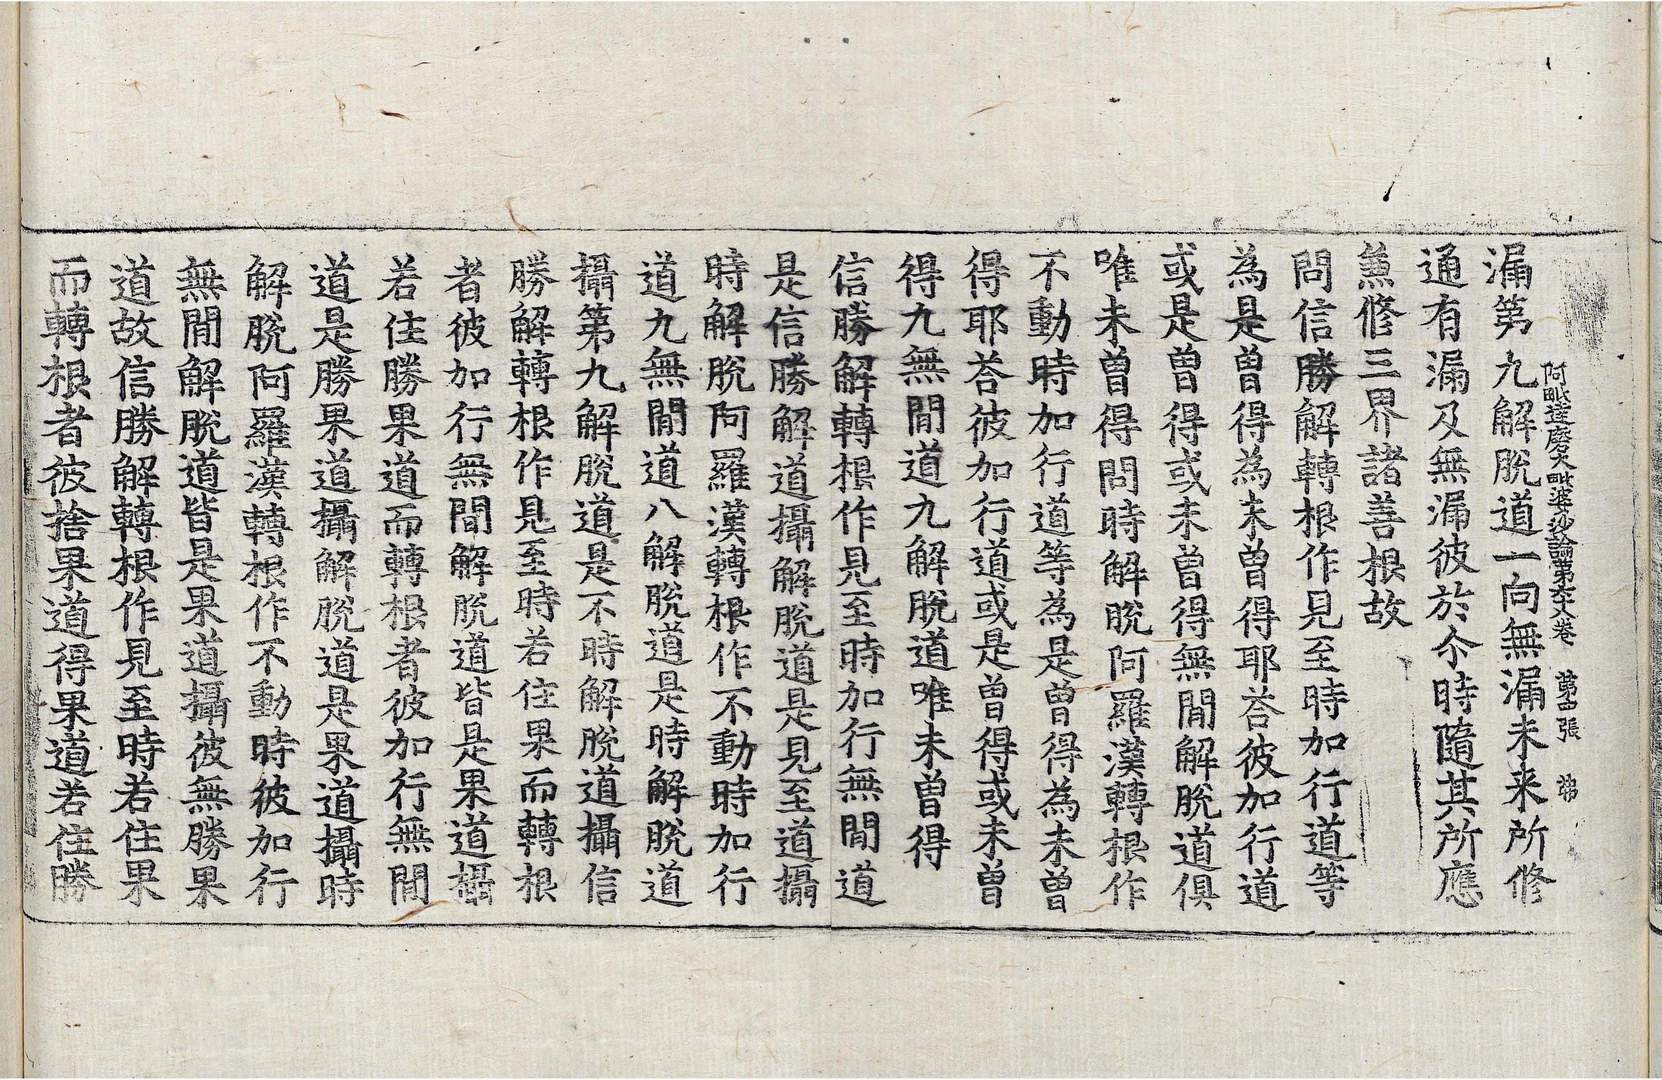 阿毗達磨大毗婆沙論第六十八卷　第十四張　弟
漏第九解脫道一向無漏未来所修
通有漏及無漏彼於尒時隨其所應
兼修三界諸善根故
問信勝解轉根作見至時加行道等
為是曾得為未曾得耶荅彼加行道
或是曾得或未曾得無閒解脫道俱
唯未曾得問時解脫阿羅漢轉根作
不動時加行道等為是曾得為未曾
得耶荅彼加行道或是曾得或未曾
得九無閒道九解脫道唯未曾得
信勝解轉根作見至時加行無閒道
是信勝解道攝解脫道是見至道攝
時解脫阿羅漢轉根作不動時加行
道九無閒道八解脫道是時解脫道
攝第九解脫道是不時解脫道攝信
勝解轉根作見至時若住果而轉根
者彼加行無閒解脫道皆是果道攝
若住勝果道而轉根者彼加行無閒
道是勝果道攝解脫道是果道攝時
解脫阿羅漢轉根作不動時彼加行
無閒解脫道皆是果道攝彼無勝果
道故信勝解轉根作見至時若住果
而轉根者彼捨果道得果道若住勝